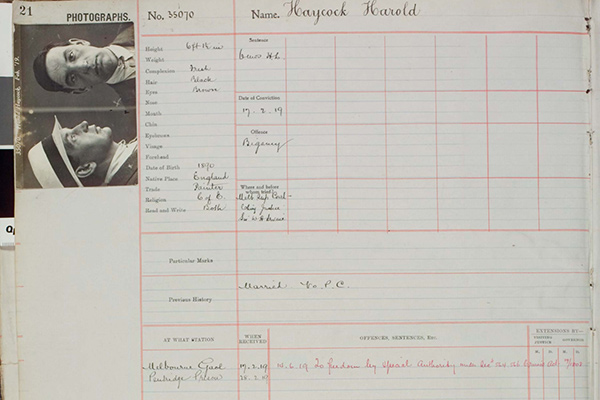 21
PHOTOGRAPHS.
No. 35070
Name. Haycock Harold
Height 6ft
Weight
Complexion Fresh
Hair Black
Eyes Brown
Nose
Mouth
Chin
Eyebrows
Visage
Forehead
Date of Birth 1870
Native Place England
Trade Painter
Religion C of E.
Read and Write Both
Sentence
H.L.
Date of Conviction
17. 2. 19
Offence
Bigamy
Where and before whom tried
Melb Sup Court
Chief Justice
Particular Marks
Previous History
Married No P.C.
AT WHAT STATION
WHEN RECEIVED
OFFENCES, SENTENCES, &c.
EXTENSIONS BY—
VISITING JUSTICE
GOVERNOR
M. D. M. D.
Melbourne Gaol 17.2.19
Pentridge Prison
14.6.19 To freedom by special Authority under Sec